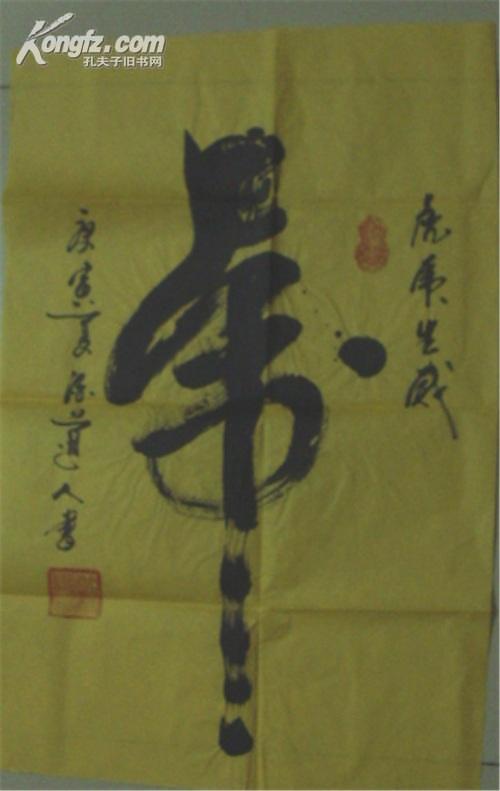 Kongfz.com
孔夫子旧书网
虎虎生威
虎
庚寅夏道人書